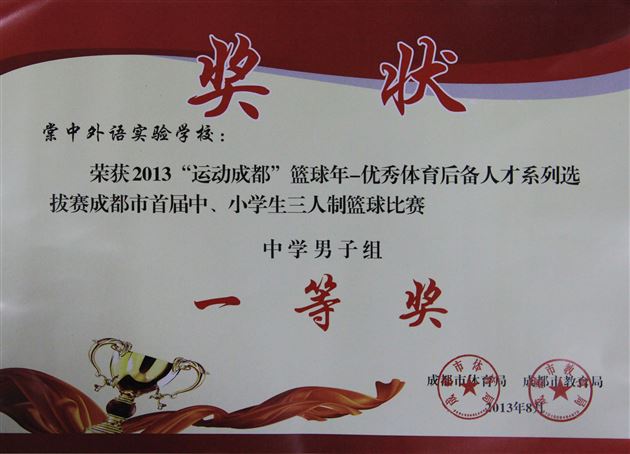 奖状
棠中外语实验学校：
荣获2013“运动成都”篮球年-优秀体育后备人才系列选
拔赛成都市首届中、小学生三人制篮球比赛
中学男子组
一等奖
成都市体育局 成都市教育局
2013年8月